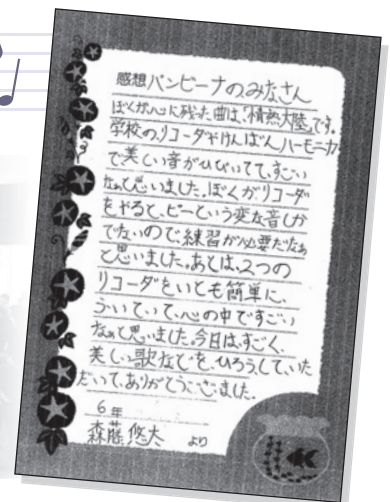 感想バンビーナのみなさん
ぼくが、心に残った曲は、「情熱大陸」です。
学校の、リコーダやけんばん、ハーモニカ
で美しい音がひびいてて、すごい
なぁと思いました。ぼくが、リコーダ
をやると、ピーという変な音しか
でないので、練習が必要だなぁ
と思いました。あとは、2つの
リコーダをいとも簡単に、
ふいていて、心の中ですごい
なぁと思いました。今日は、すごく
美しい歌などを、ひろうしていた
だいて、ありがとうございました。
6年
森藤 悠大 より